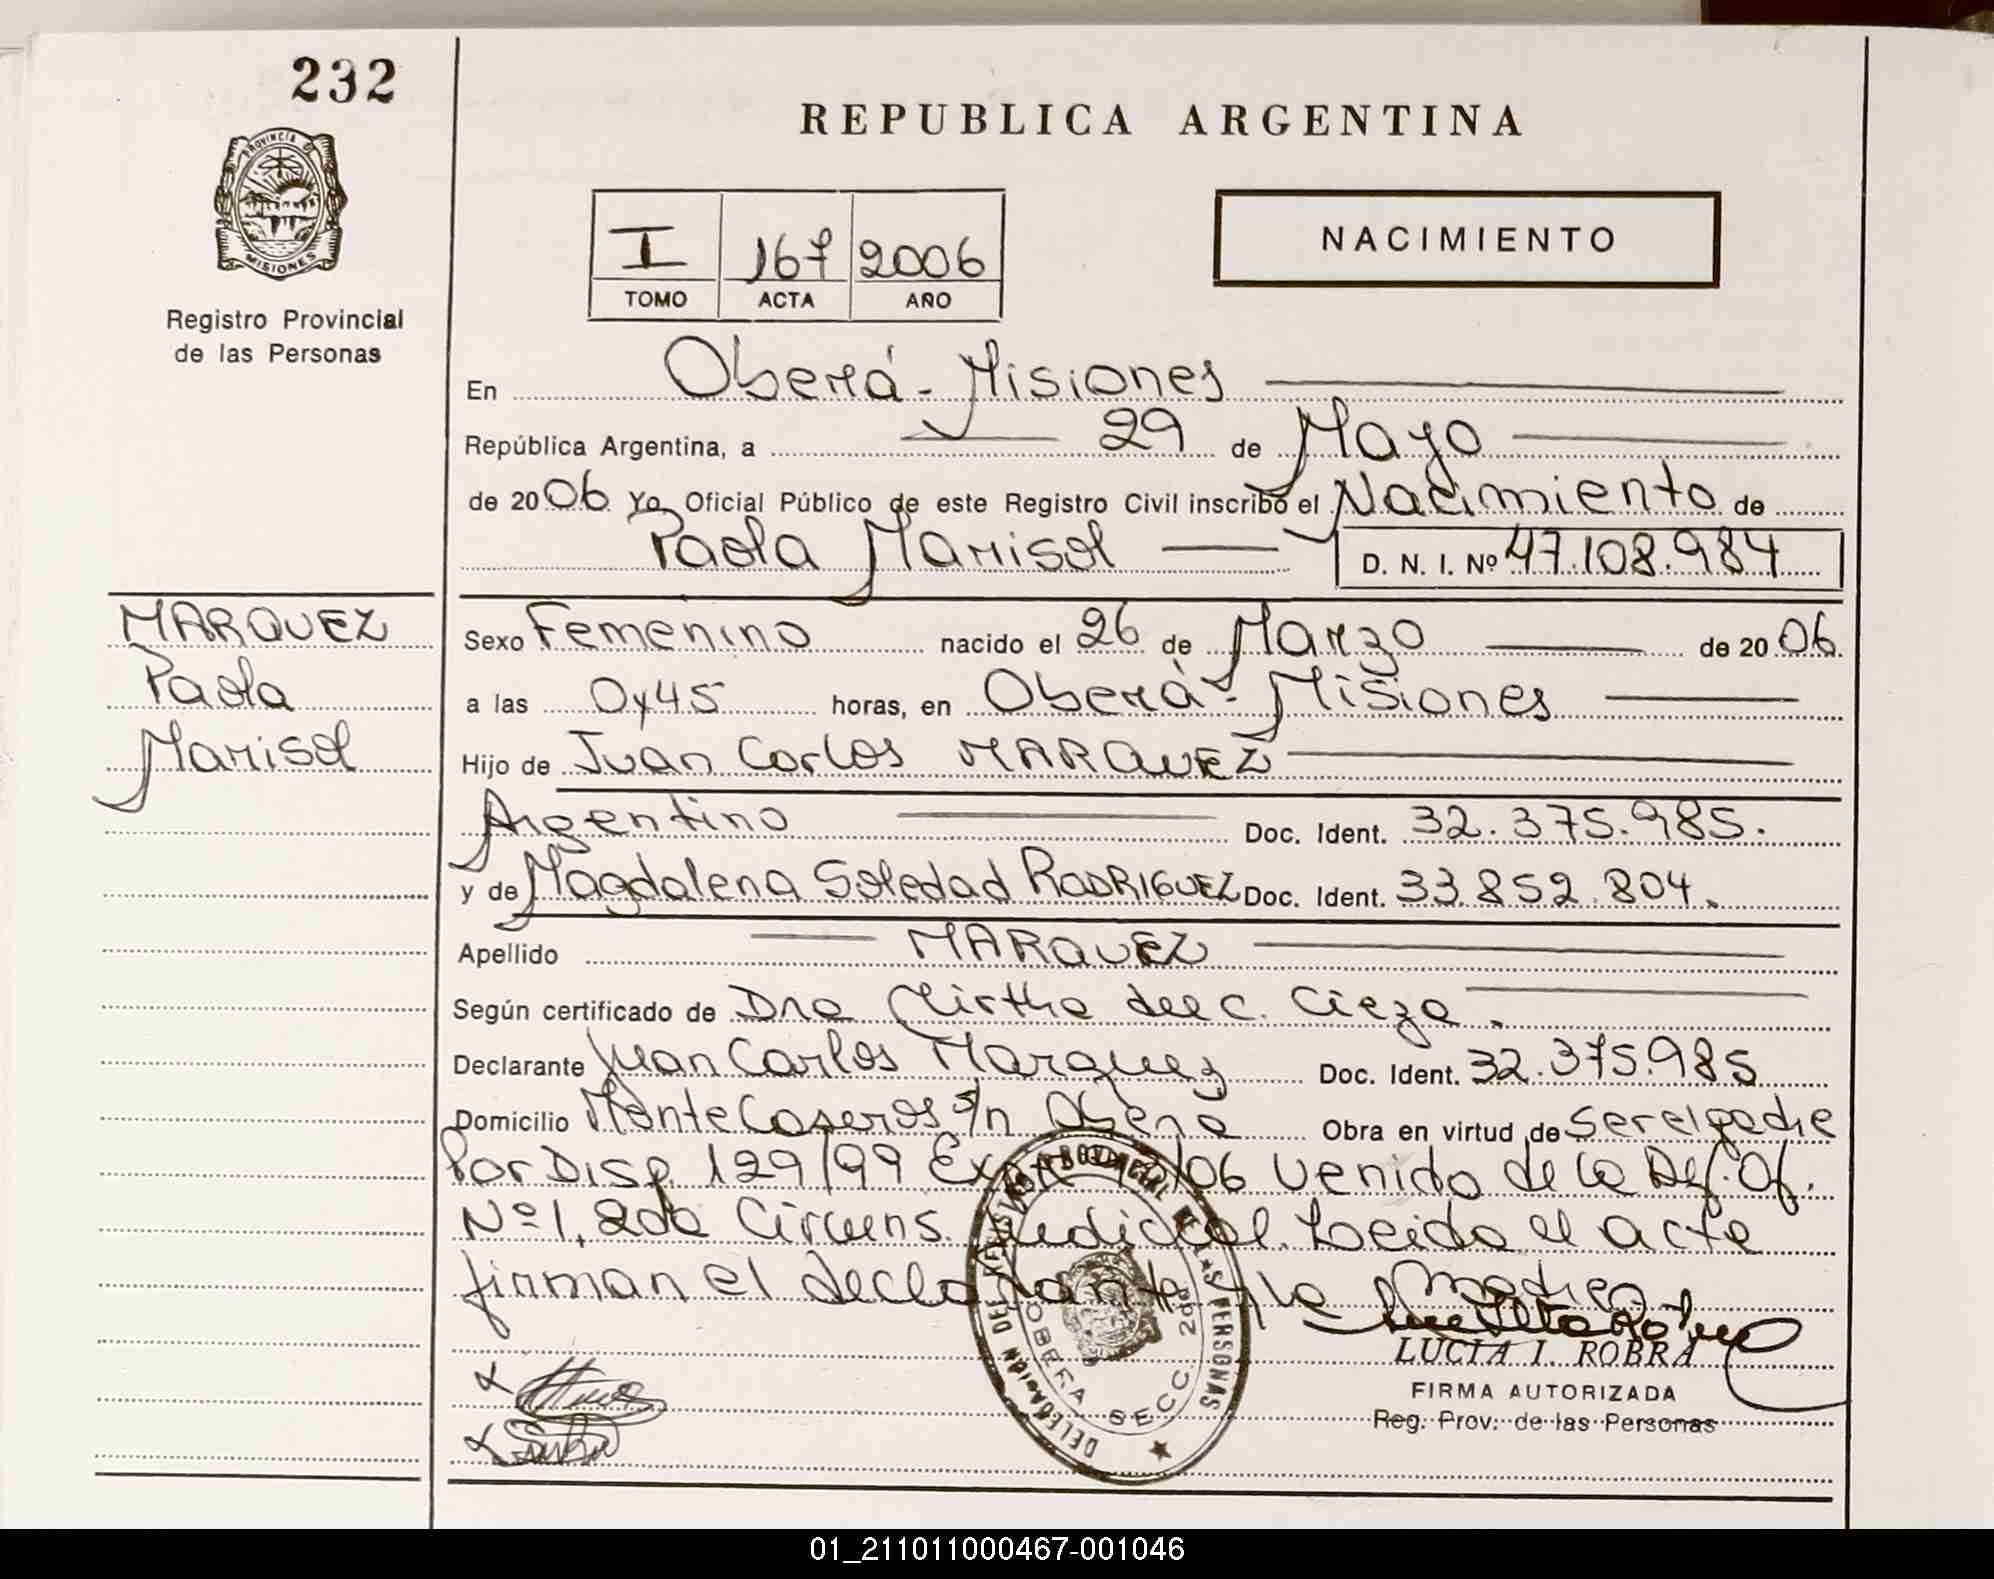 232
PROVINCIA DE
MISIONES
Registro Provincial
de las Personas
REPUBLICA ARGENTINA
I 167 2006
TOMO ACTA AÑO
NACIMIENTO
En Oberá - Misiones
República Argentina, a 29 de Mayo
de 2006 Yo, Oficial Público de este Registro Civil inscribo el Nacimiento de
Paola Marisol D. N. I. Nº 47.108.984
MARQUEZ
Paola
Marisol
Sexo Femenino nacido el 26 de Marzo de 2006.
a las 0y45 horas, en Oberá - Misiones
Hijo de Juan Carlos MARQUEZ
Argentino Doc. Ident. 32.375.985.
y de Magdalena Soledad RODRIGUEZ Doc. Ident. 33.852.804.
Apellido MARQUEZ
Según certificado de Dra Mirtha del C. Cieza.
Declarante Juan Carlos Marquez Doc. Ident. 32.375.985
Domicilio Monte Caseros s/n Oberá Obra en virtud de ser el padre
Por Disp. 129/99 /06 venido de la Def. Of.
Nº 1, 2da Circuns. Judicial. Leida el acta
firman el declarante y la madre
LUCIA I. ROBRA
FIRMA AUTORIZADA
Reg. Prov. de las Personas
DELEGACIÓN DEL REGISTRO PROVINCIAL DE LAS PERSONAS
OBERA SECC. 2da
01_211011000467-001046